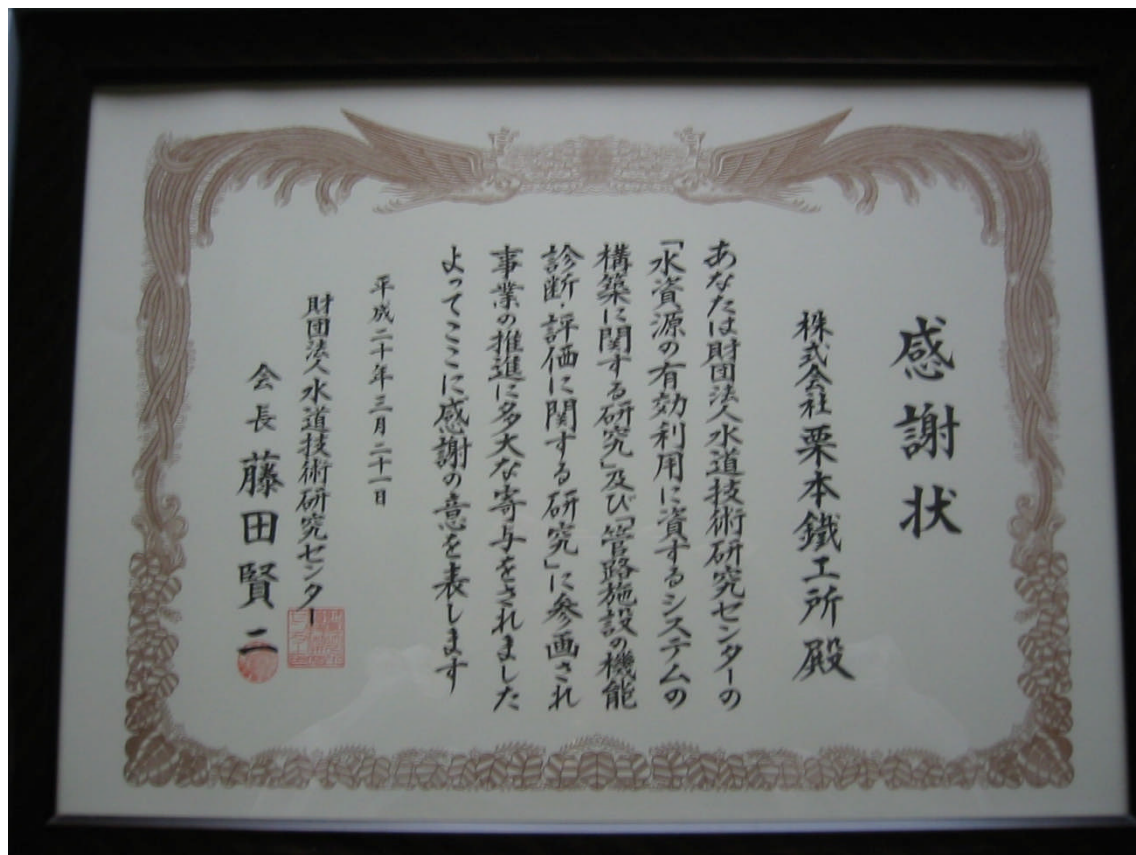 感謝状
株式会社 栗本鐵工所 殿
あなたは財団法人水道技術研究センターの
「水資源の有効利用に資するシステムの
構築に関する研究」及び「管路施設の機能
診断・評価に関する研究」に参画され
事業の推進に多大な寄与をされました
よってここに感謝の意を表します
平成二十年三月二十一日
財団法人 水道技術研究センター
会長 藤田賢二